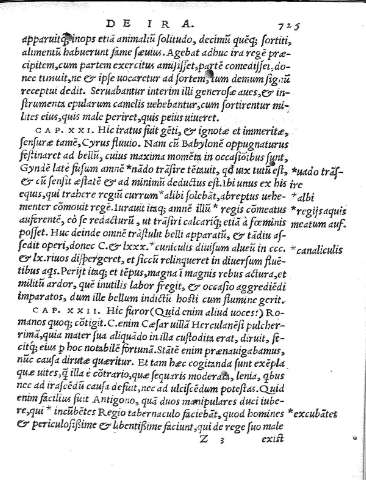 DE IRA. 725
apparuitq́; inops etiā animaliū solitudo, decimū quēq; sortiti,
alimentū habuerunt fame sæuius. Agebat adhuc ira regē præ-
cipitem, cum partem exercitus amisisset, partē comedisset, do-
nec timuit, ne & ipse uocaretur ad sortem, tum demum signū
receptui dedit. Seruabantur interim illi generosæ aues, & in-
strumenta epularum camelis uehebantur, cum sortirentur mi-
lites eius, quis male periret, quis peius uiueret.
CAP. XXI. Hic iratus fuit gēti, & ignotæ et immeritæ,
sensuræ tamē, Cyrus fluuio. Nam cū Babylonē oppugnaturus
festinaret ad bellū, cuius maxima momēta in occasiōibus sunt,
Gyndē latè fusum amnē *nādo trāsire tētauit, qd uix tutū est, *uado trās-
& cū sensit æstatē & ad minimū deductus est. ibi unus ex his ire
equis, qui trahere regiū currum *alibi solebāt, abreptus uehe- *albi
menter cōmouit regē. Iurauit itaq; amnē illū *regis cōmeatus *regijs aquis
auferentē, eò se redacturū, ut trāsiri calcariq; etiā à fœminis meatum auf.
posset. Huc deinde omnē trāstulit belli apparatū, & tādiu as-
sedit operi, donec C. & lxxx. *cuniculis diuisum alueū in ccc. *canaliculis
& lx. riuos dispergeret, et siccū relinqueret in diuersum fluē-
tibus aqs. Perijt itaq; et tēpus, magna ī magnis rebus actura, et
militū ardor, quē inutilis labor fregit, & occasio aggrediēdi
imparatos, dum ille bellum indictū hosti cum flumine gerit.
CAP. XXII. Hic furor (Quid enim aliud uoces?) Ro-
manos quoq; cōtigit. C. enim Cæsar uillā Herculanēsi pulcher-
rimā, quia mater sua aliquādo in illa custodita erat, diruit, fe-
citq́; eius p hoc notabilē fortunā. Stātē enim prænauigabamus,
nūc causa dirutæ quæritur. Et tam hæc cogitanda sunt exēpla
quæ uites, q̄ illa è cōtrario, quæ sequaris moderata, lenia, qbus
nec ad irascēdū causa defuit, nec ad ulciscēdum potestas. Quid
enim facilius fuit Antigono, quā duos manipulares duci iube-
re, qui *incūbētes Regio tabernaculo faciebāt, quod homines *excubātes
& periculosissime & libentissime faciunt, qui de rege suo male
Z 3 exist